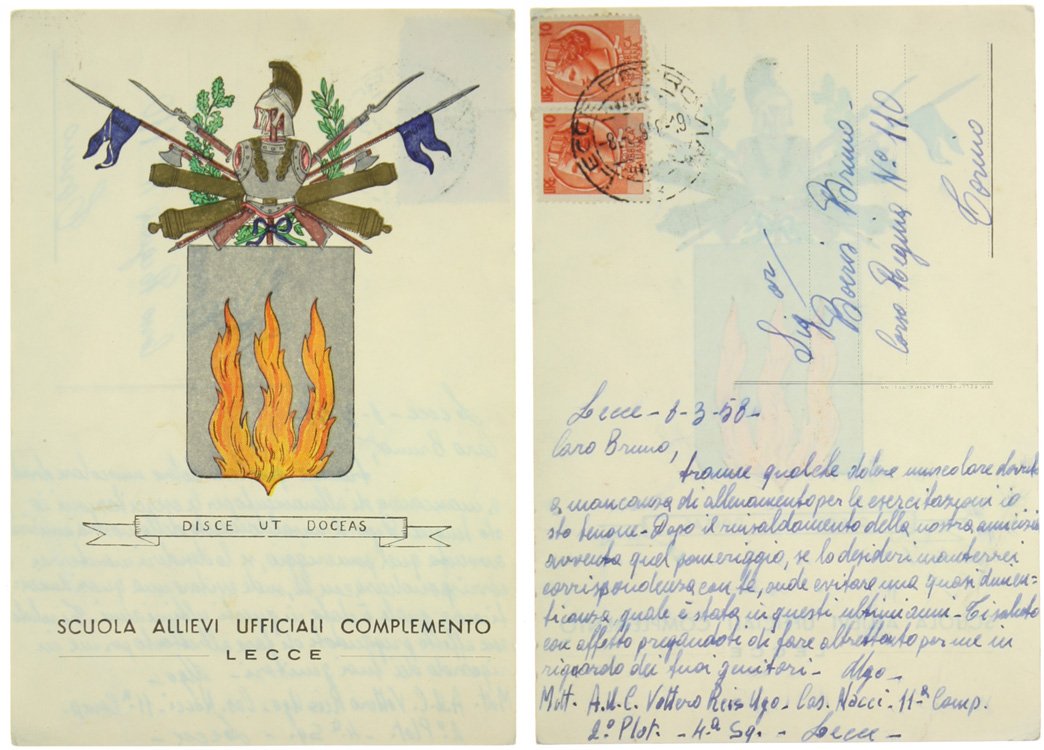 DISCE UT DOCEAS
SCUOLA ALLIEVI UFFICIALI COMPLEMENTO
LECCE
10
LIRE
10
LIRE
LECCE
Sig or
Bruno
Corso Regina N° 110
Torino
Lecce - 8-3-58 -
Caro Bruno,
tranne qualche dolore muscolare dovuto
a mancanza di allenamento per le esercitazioni io
sto benone - Dopo il rinsaldamento della nostra amicizia
avvenuta quel pomeriggio, se lo desideri manterrei
corrispondenza con te, onde evitare una quasi dimen-
ticanza, quale è stata in questi ultimi anni - Ti saluto
con affetto pregandoti di fare altrettanto per me in
riguardo dei tuoi genitori - Ugo -
Mitt. A.U.C. Vottero Reis Ugo - Cas. Nacci - 11ª Comp.
2° Plot. - 4ª Sq. - Lecce -